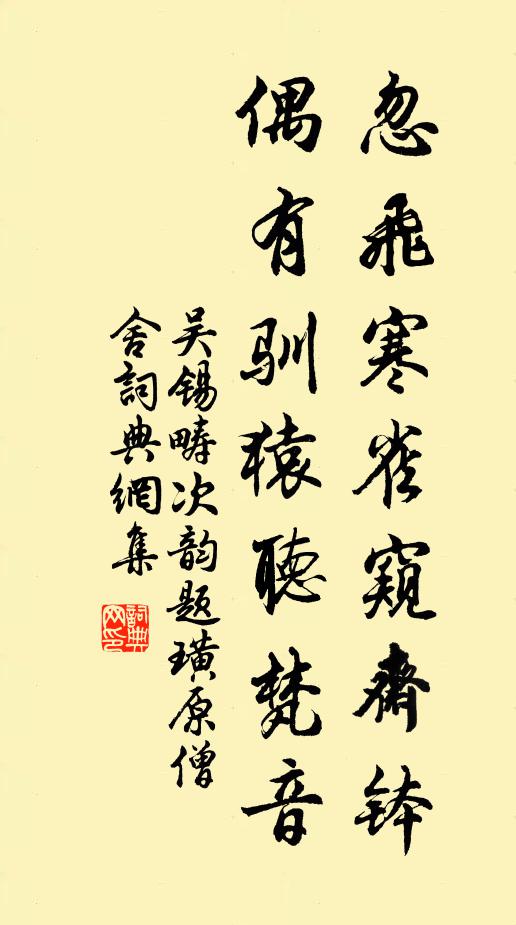 忽飛寒雀窺齋鉢
偶有馴猿聽梵音
吴錫疇次韵題璜原僧
舍詞典網集
詞典
网印